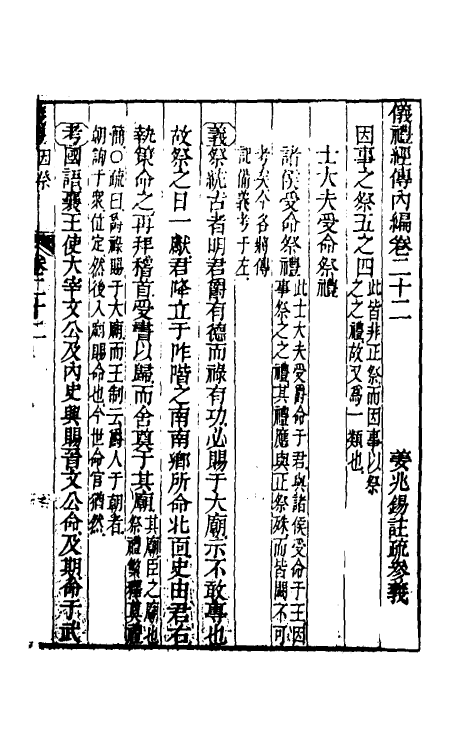 儀禮經傳內編卷二十二　姜兆錫註疏參義
因事之祭五之四
此皆非正祭而因事以祭
之之禮故又爲一類也
士大夫受命祭禮
諸侯受命祭禮
此士大夫受爵命于君與諸侯受命于王因
事祭之之禮其禮應與正祭殊而皆闕不可
考矣今各將傳
記備義考于左
義祭統古者明君爵有德而祿有功必賜于大廟示不敢專也
故祭之日一獻君降立于阼階之南南鄉所命北面史由君右
執策命之再拜稽首受書以歸而舍奠于其廟
其廟臣之廟也
祭禮槩釋奠禮
簡○疏曰爵祿賜于大廟而王制云爵人于朝者
朝詢于衆位定然後入廟賜命也今世命官猶然
考國語襄王使大宰文公及內史興賜晉文公命及期命于武
因祭
卷二十二